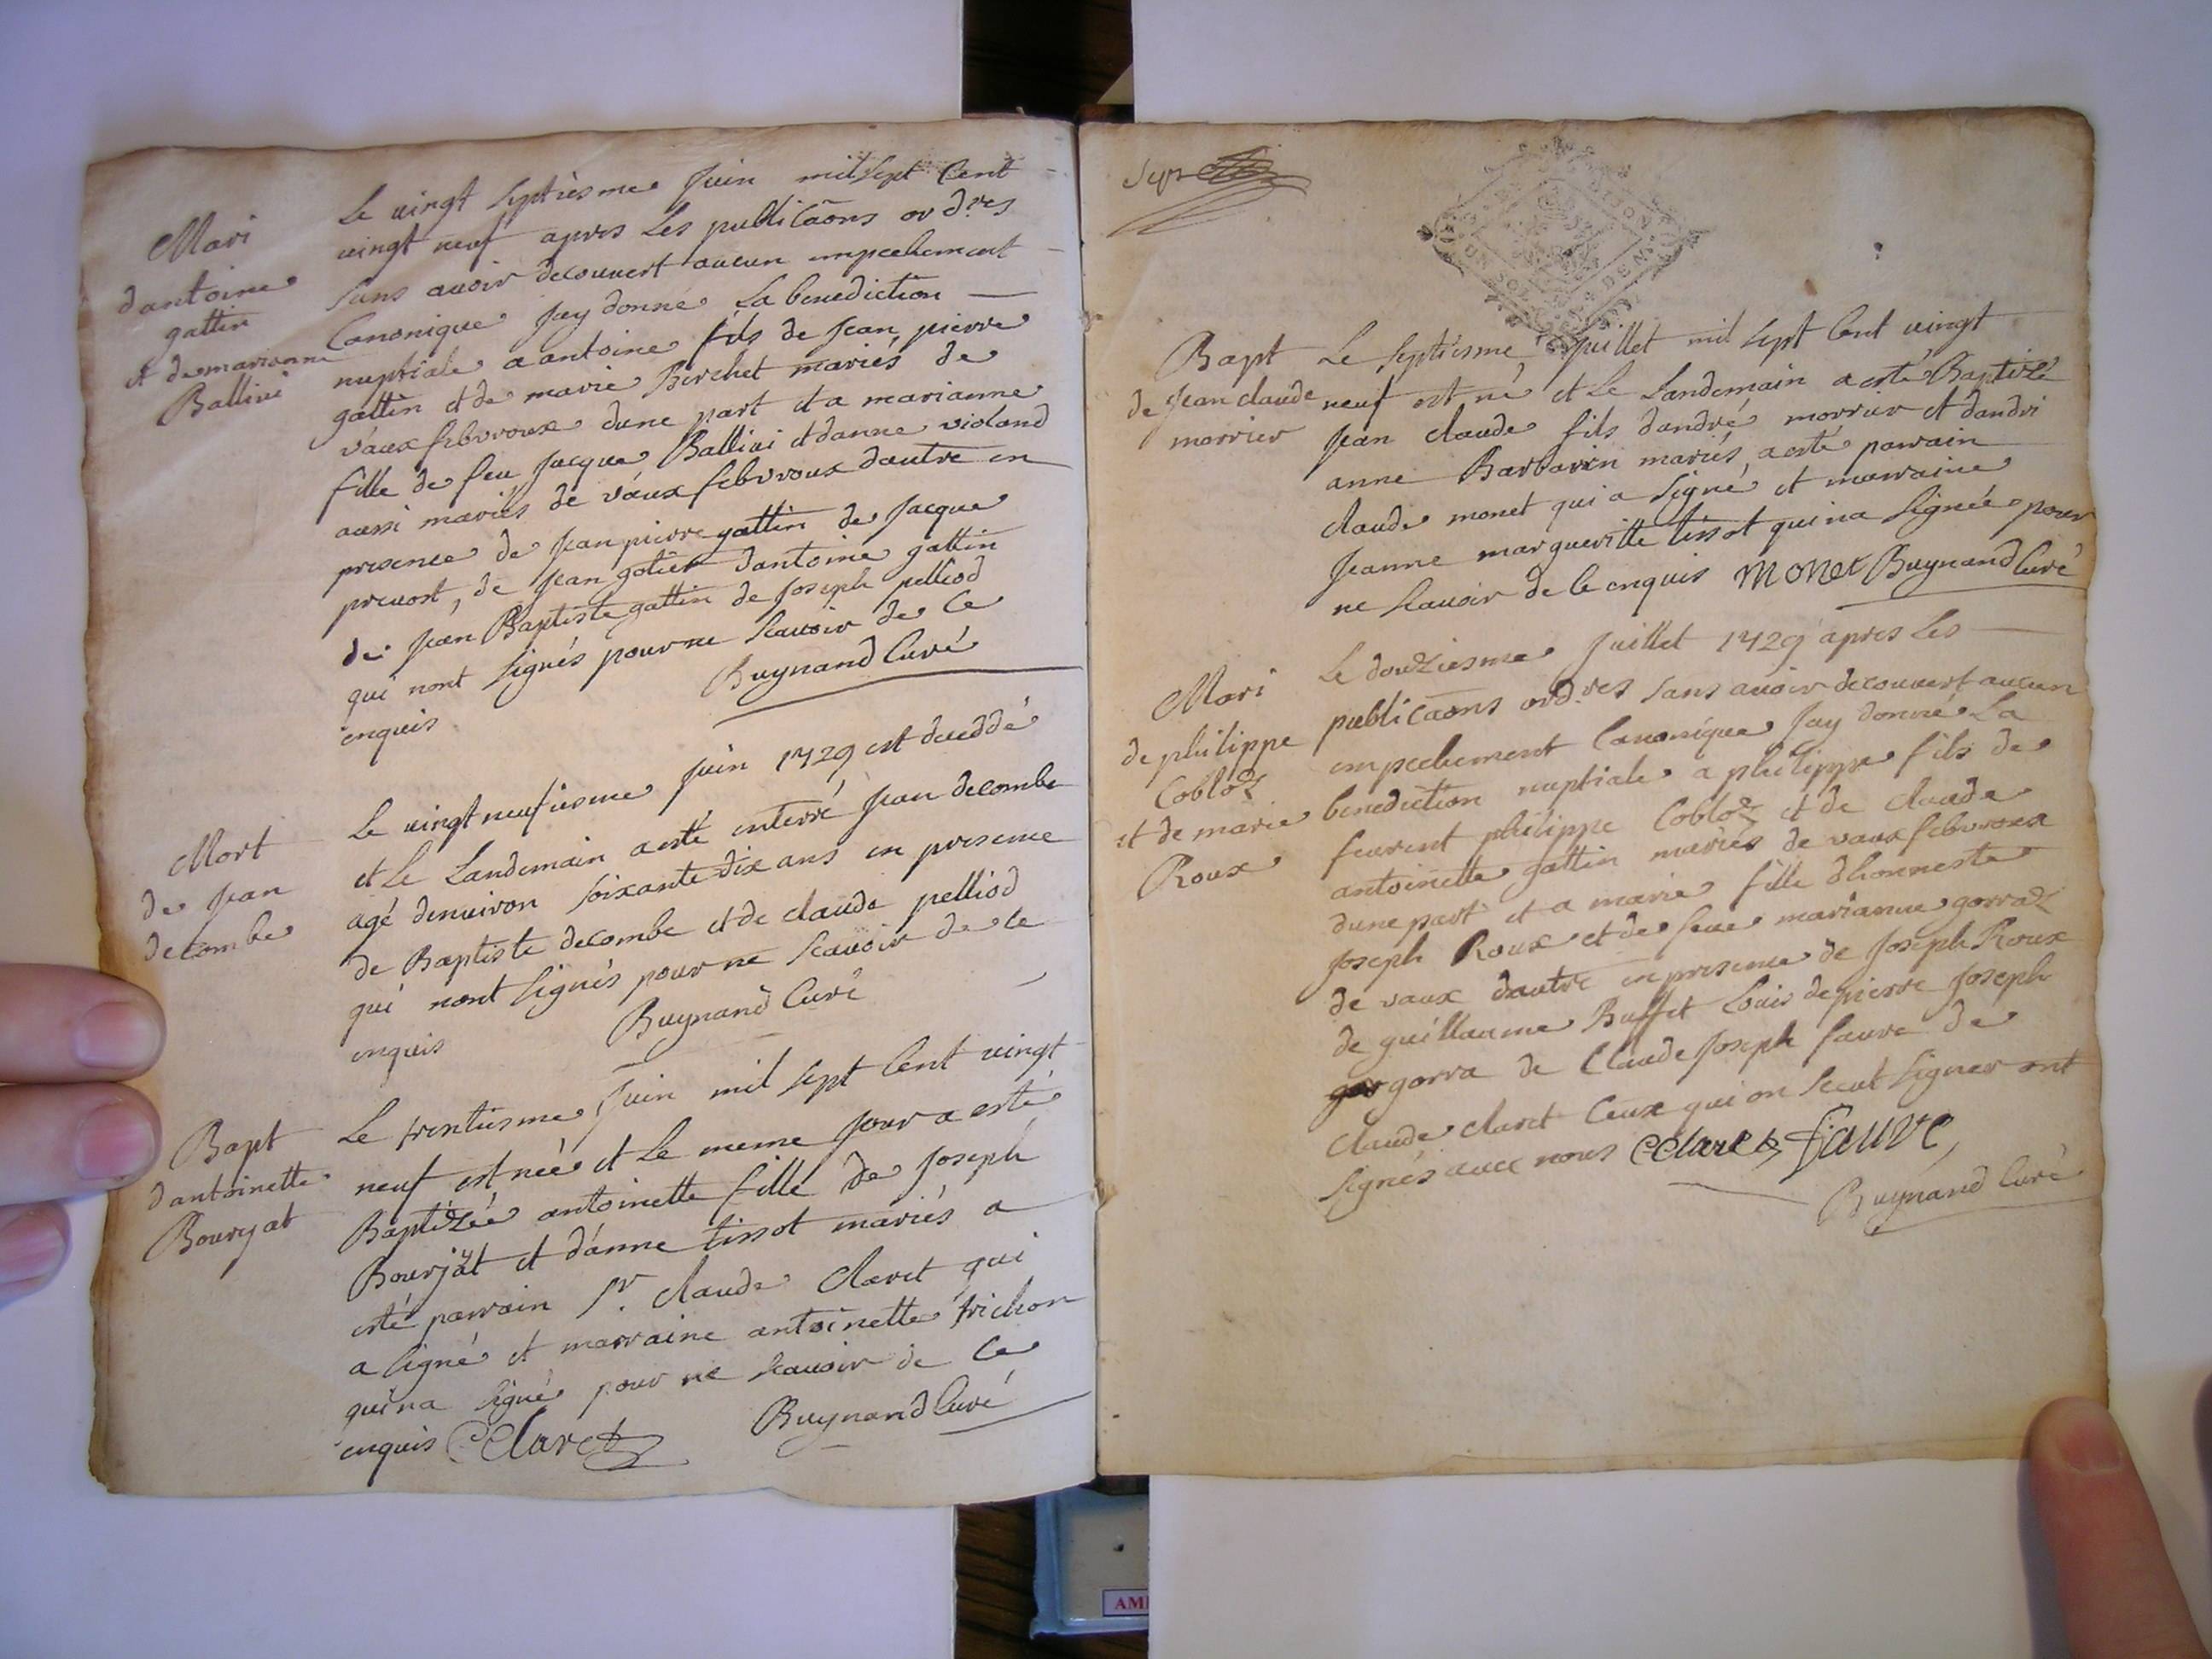 Mari
dantoine
gattin
et de marianne
Ballivi
Le vingt septiesme Juin mil sept Cent
vingt neuf apres Les publicaons ord.res
sans avoir decouvert aucun empechement
Canonique Jay donné La benediction
nuptiale a antoine fils de Jean pierre
gattin et de marie Berchet mariés de
vaux febvroux dune part et a marianne
fille de feu Jacque Ballivi et danne violand
aussi mariés de vaux febvroux dautre en
presence de Jean pierre gattin de Jacque
prevost, de Jean gotier dantoine gattin
de Jean Baptiste gattin de Joseph pelliod
qui nont signés pour ne scavoir de Ce
enquis Buynand Curé
Mort
de Jean
decombe
Le vingt neufiesme Juin 1729 est deceddé
et Le Landemain a esté enterré Jean decombe
agé denviron soixante dix ans en presence
de Baptiste decombe et de claude pelliod
qui nont signés pour ne scavoir de ce
enquis Buynand Curé
Bapt
dantoinette
Bourjat
Le trentiesme Juin mil sept Cent vingt
neuf est neé et Le meme Jour a esté
Baptizée antoinette fille de Joseph
Bourjat et danne tissot mariés a
esté parrain Sr. claude Claret qui
a signé et marraine antoinette trichon
qui na signé pour ne scavoir de Ce
enquis CClaret Buynand Curé
Sept
Bapt
de Jean claude
morrier
Le septiesme Juillet mil sept Cent vingt
neuf est né et Le Landemain a esté Baptizé
Jean claude fils dandré morrier et dandri
anne Barbarin mariés, a esté parrain
claude monet qui a signé et marraine
Jeanne margueritte tissot qui na signée pour
ne scavoir de ce enquis Monet Buynand Curé
Mari
de philippe
Cobloz
et de marie
Roux
Le douziesme Juillet 1729 apres Les
publicaons ord.res sans avoir decouvert aucun
empechement Canonique Jay donné La
benediction nuptiale a philippe fils de
feurent philippe Cobloz et de claude
antoinette gattin mariés de vaux febvroux
dune part et a marie fille dhonneste
Joseph Roux et de feue marianne gorraz
de vaux dautre en presence de Joseph Roux
de guillaume Buffet Louis de pierre Joseph
gorra de Claude Joseph faure de
claude claret Ceux qui on sceut signer ont
signés avec nous CClaret fauvre
Buynand Curé
AM